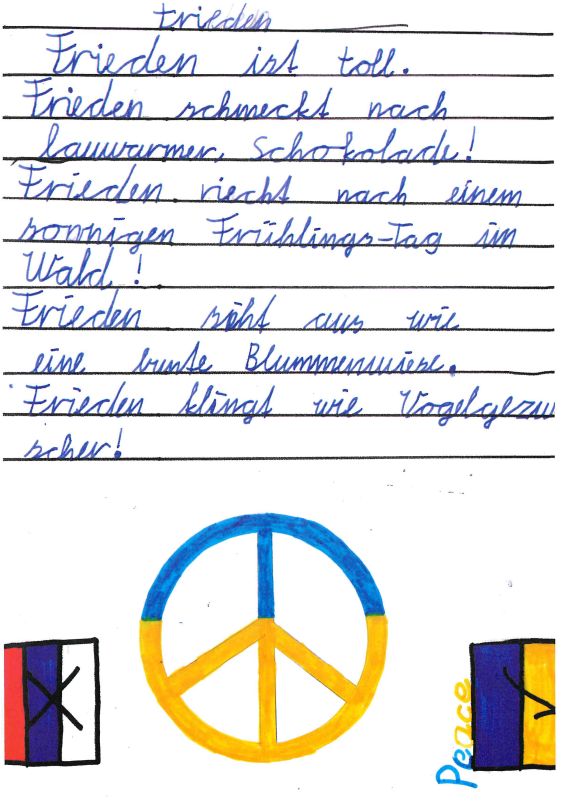 Frieden
Frieden ist toll.
Frieden schmeckt nach
lauwarmer, Schokolade!
Frieden riecht nach einem
sonnigen Frühlings-Tag im
Wald!
Frieden sieht aus wie
eine bunte Blummenwiese.
Frieden klingt wie Vogelgezwi
scher!
Peace